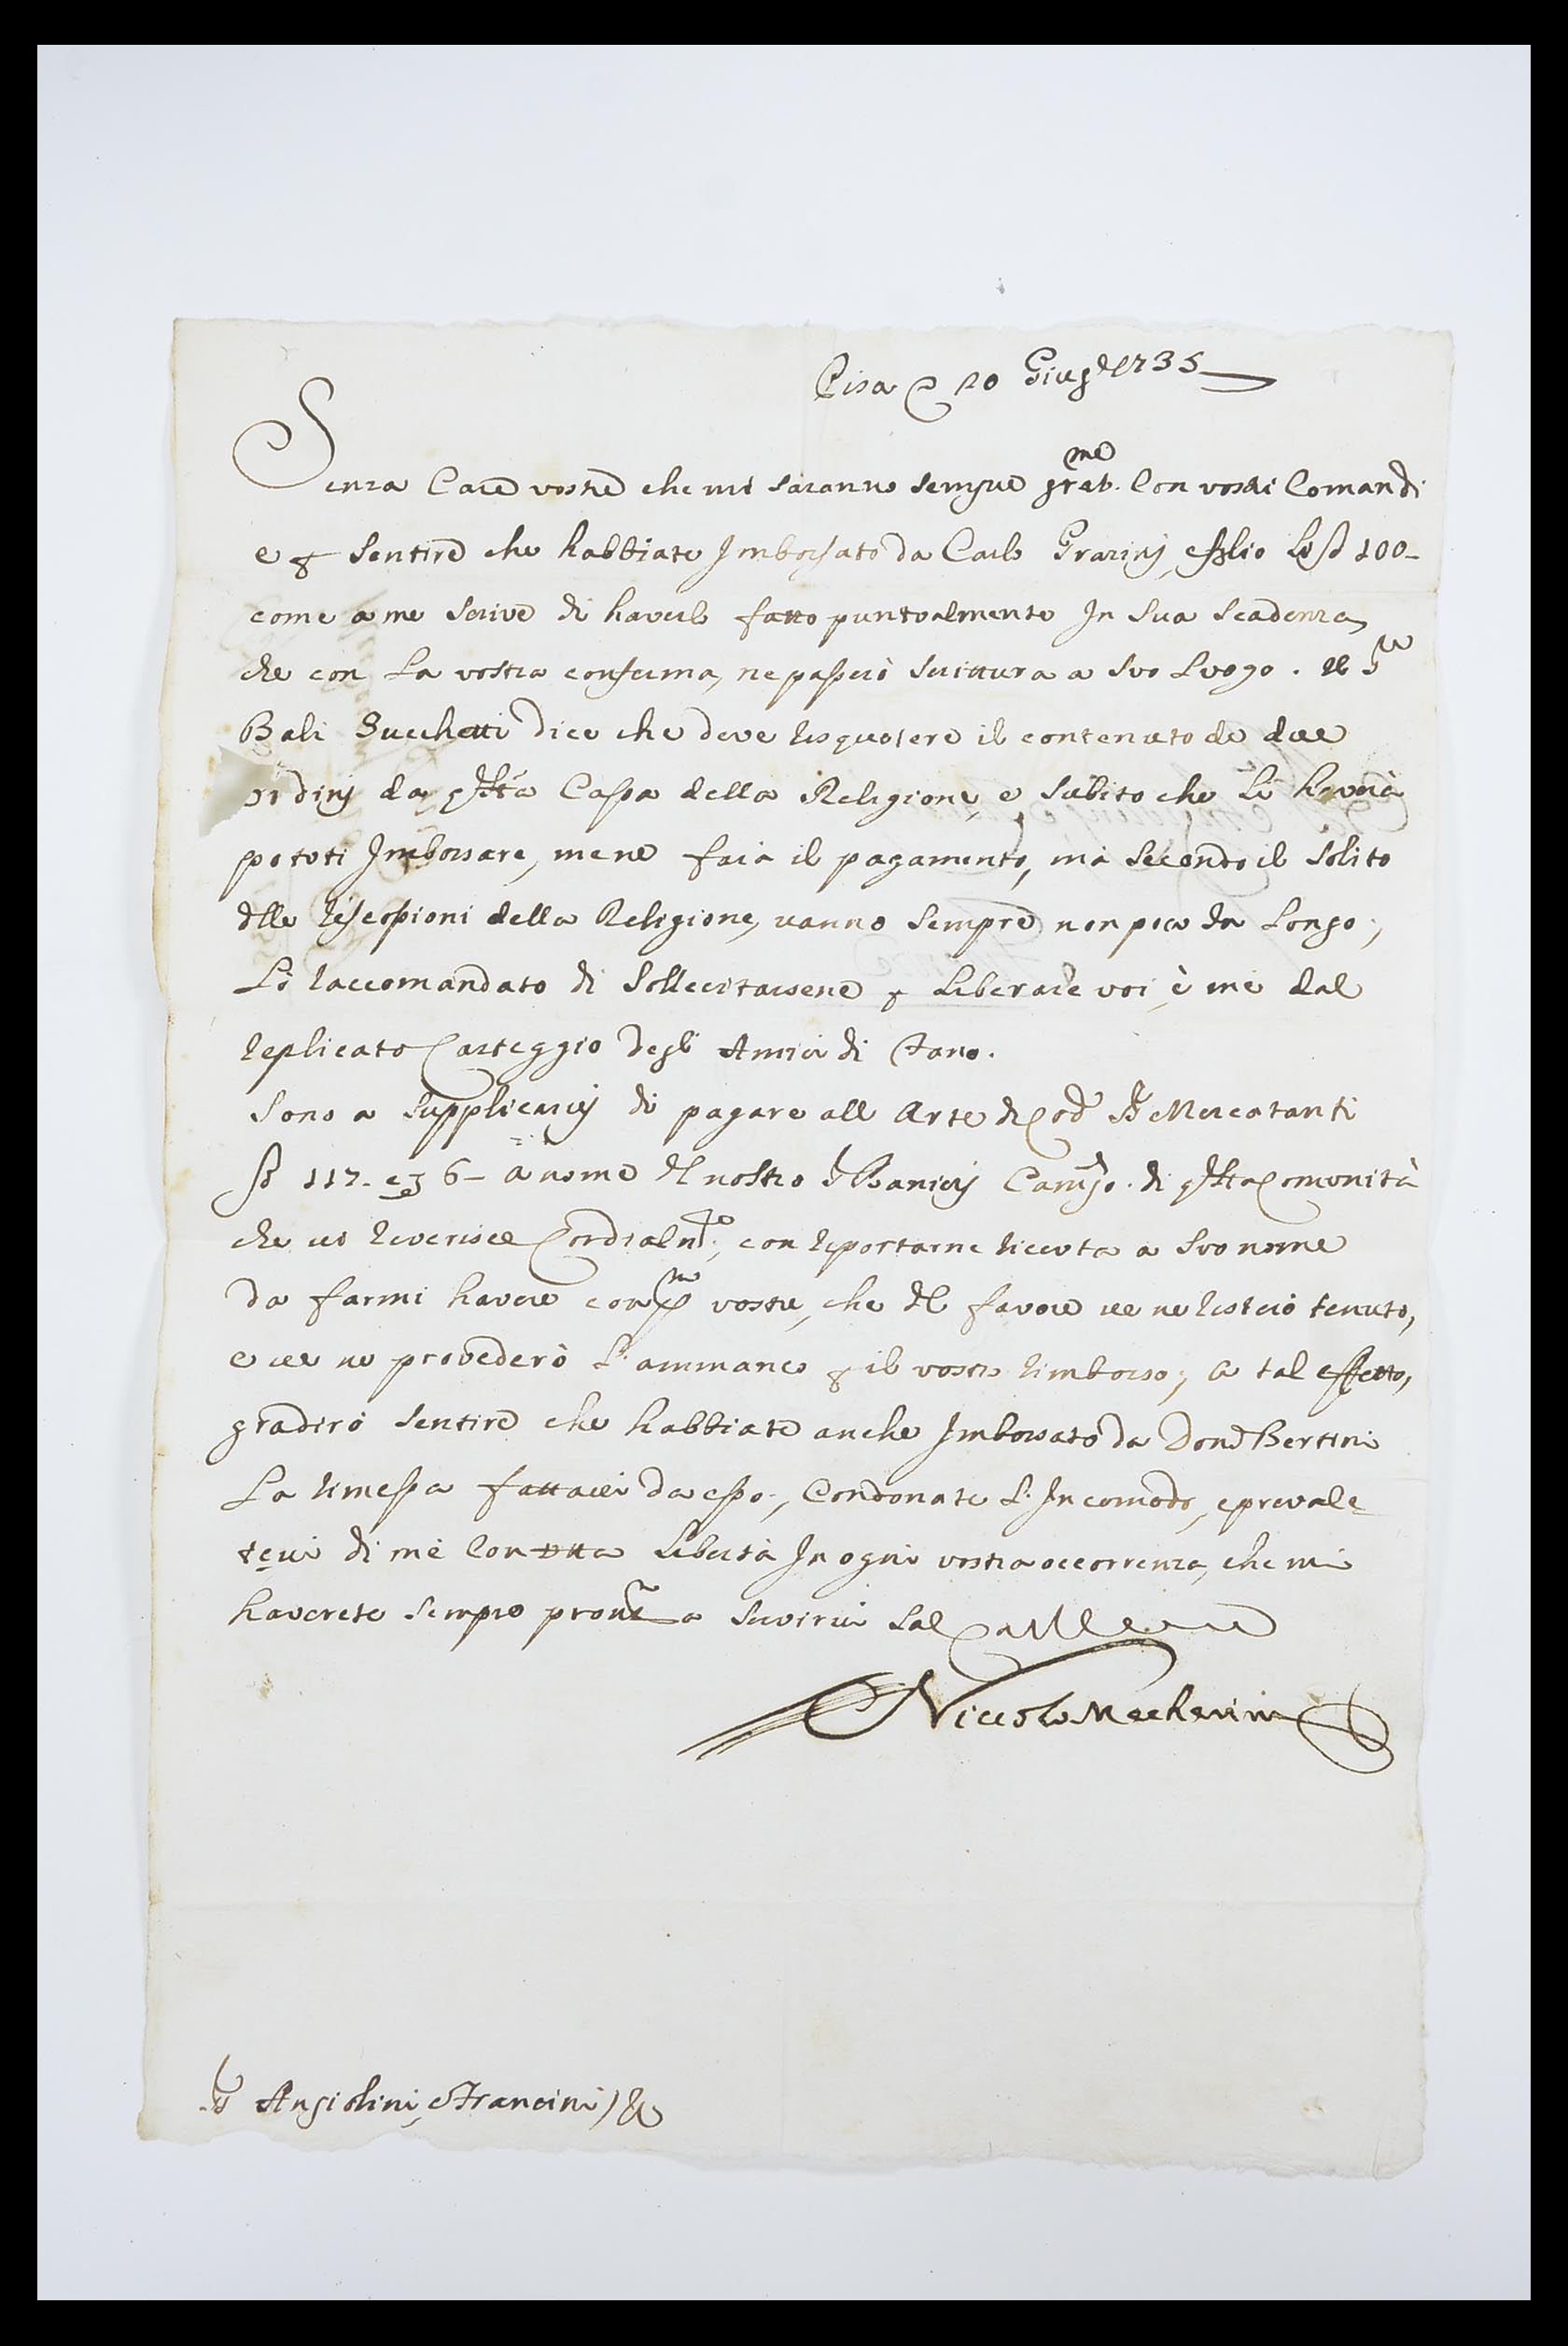 Pisa 20 Giug.o 1735
Senza Care vostre che mi saranno sempre grat.me Con vostri Comandi
e p sentire che habbiate Imborsato da Carlo Grazinj, e figlio Le 100-
come a me scrive di haverlo fatto puntoalmente In sua scadenza
che con La vostra conferma, ne passerò scrittura a suo Luogo. Il Sre
Balì Succhetti dice che deve risquotere il contenuto de due
ordinj da Cassa della Religione, e subito che Li haverà
potuti Imborsare, mene farà il pagamento, mà secondo il solito
dlle riscossioni della Religione, vanno sempre non poco da Longo;
Lò raccomandato di Sollecitarsene p Liberare voi, è mè dal
replicato Carteggio degli Amici di Fano.
Sono a supplicarvj di pagare all Arte Mercatanti
117. 6- a nome dl nostro Camgo. di Comonità
che vi reverisce Cordialmte; con riportarne riceuta a suo nome
da farmi havere con pma vostre, che dl favore ve ne resterò tenuto,
e ve ne provederò L'ammanco p il vostro rimborso; a tal effetto,
gradirò sentire che habbiate anche Imborsato da Dond Bertini
La rimessa fattavi da esso; Condonate L'Incomodo, e prevale=
tevi di mè Con tutta Libertà In ogni vostra occorrenza, che mi
haverete sempre pronto a servirvi Sal
Niccolo Mecherini
Angiolini, e Francini